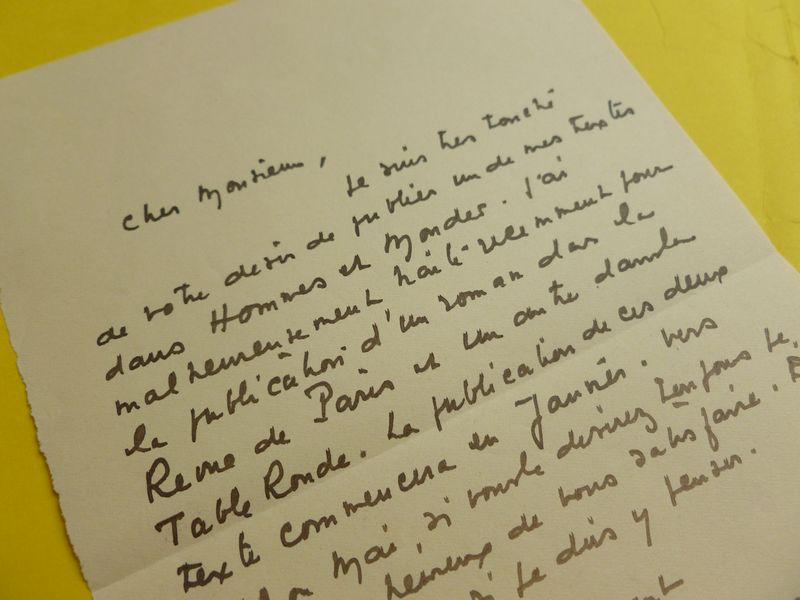 Cher Monsieur,
Je suis très touché
de votre désir de publier un de mes textes
dans Hommes et Mondes. J'ai
malheureusement traité récemment pour
la publication d'un roman dans la
Revue de Paris et un autre dans la
Table Ronde. La publication de ces deux
textes commencera en Janvier. Vers
ou Mai, si vous le désirez
heureux de vous satisfaire.
si je dois y penser.